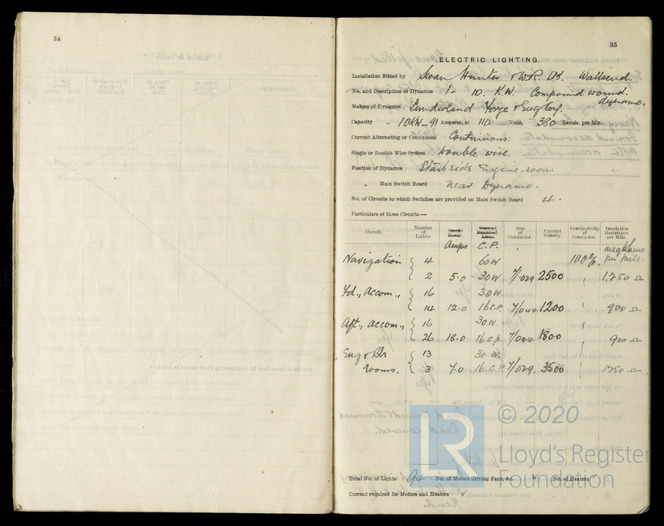 34
35
ELECTRIC LIGHTING.
Installation Fitted by Swan Hunter & W.R. Ltd. Wallsend.
No. and Description of Dynamos 1 - 10. K.W. Compound wound.
Makers of Dynamos Sunderland Forge & Eng Coy. dynamo.
Capacity - 10KW - 91 Amperes, at 110 Volts, 380 Revols. per Min.
Current Alternating or Continuous Continuous.
Single or Double Wire System Double wire.
Position of Dynamos Starb. side Engine room
„ Main Switch Board near Dynamo.
No. of Circuits to which Switches are provided on Main Switch Board 4.
Particulars of these Circuits:—
Circuit. Number of Lights. Size of Conductor. Current Density. Conductivity of Conductor. Insulation Resistance per Mile.
Amps C.P. megohms
Navigation 4 60W 100%. per mile
2 5.0 30W 7/029 2500 " 1,250 Ω
Fd., Accom., 16 30W.
14 12.0 16 C.P. 7/044 1200 " 900 Ω
Aft., accom., 16 30W.
26 18.0 16 C.P. 7/044 1800 " 900 Ω
Eng & Blr 13 30.W.
rooms. 3 7.0 16 C.P. 7/029. 3500 " 1250 Ω
© 2020
LR
Lloyd's Register
Foundation
Total No. of Lights 94 No. of Motors driving Fans, &c. No. of Heaters
Current required for Motors and Heaters